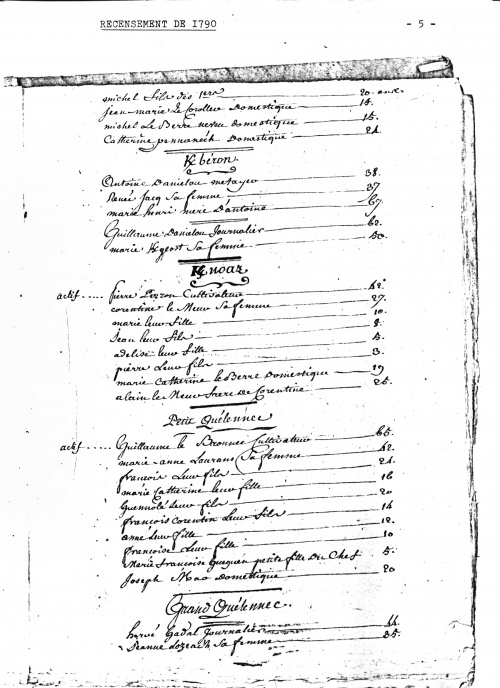 RECENSEMENT DE 1790 - 5 -
michel fils des 1ers 20. ans.
jean-marie Le Corollec Domestique 15.
michel Le Berre neveu domestique 15.
Catherine pennanech Domestique 21.
K/béron.
Antoine Danielou metayer 38.
Renée Jacq Sa femme 37
marie henri mere D'antoine 67.
Guillaume Danielou Journalier 62.
marie K/geost Sa femme 50.
K/noaz
actif ..... pierre Cultivateur 42.
corentine le Meur Sa femme 27.
marie leur fille 10.
Jean leur fils 8.
adelise leur fille 5.
pierre Leur fils 3.
marie Catherine le Berre Domestique 19
alain le Meur frere de Corentine 25.
Petit Quélennec
actif ..... Guillaume le Cultivateur 65.
marie-anne Sa femme 42.
françois Leur fils 21.
marie Catherine leur fille 16
Guenolé Leur fils 20
françois Corentin Leur fils 14
anne Leur fille 12.
françoise Leur fille 10
Marie françoise Gueguen petite fille Du Chef 5.
Joseph Domestique 20
Grand Quélennec.
hervé Journalier 44.
Jeanne Sa femme 35.